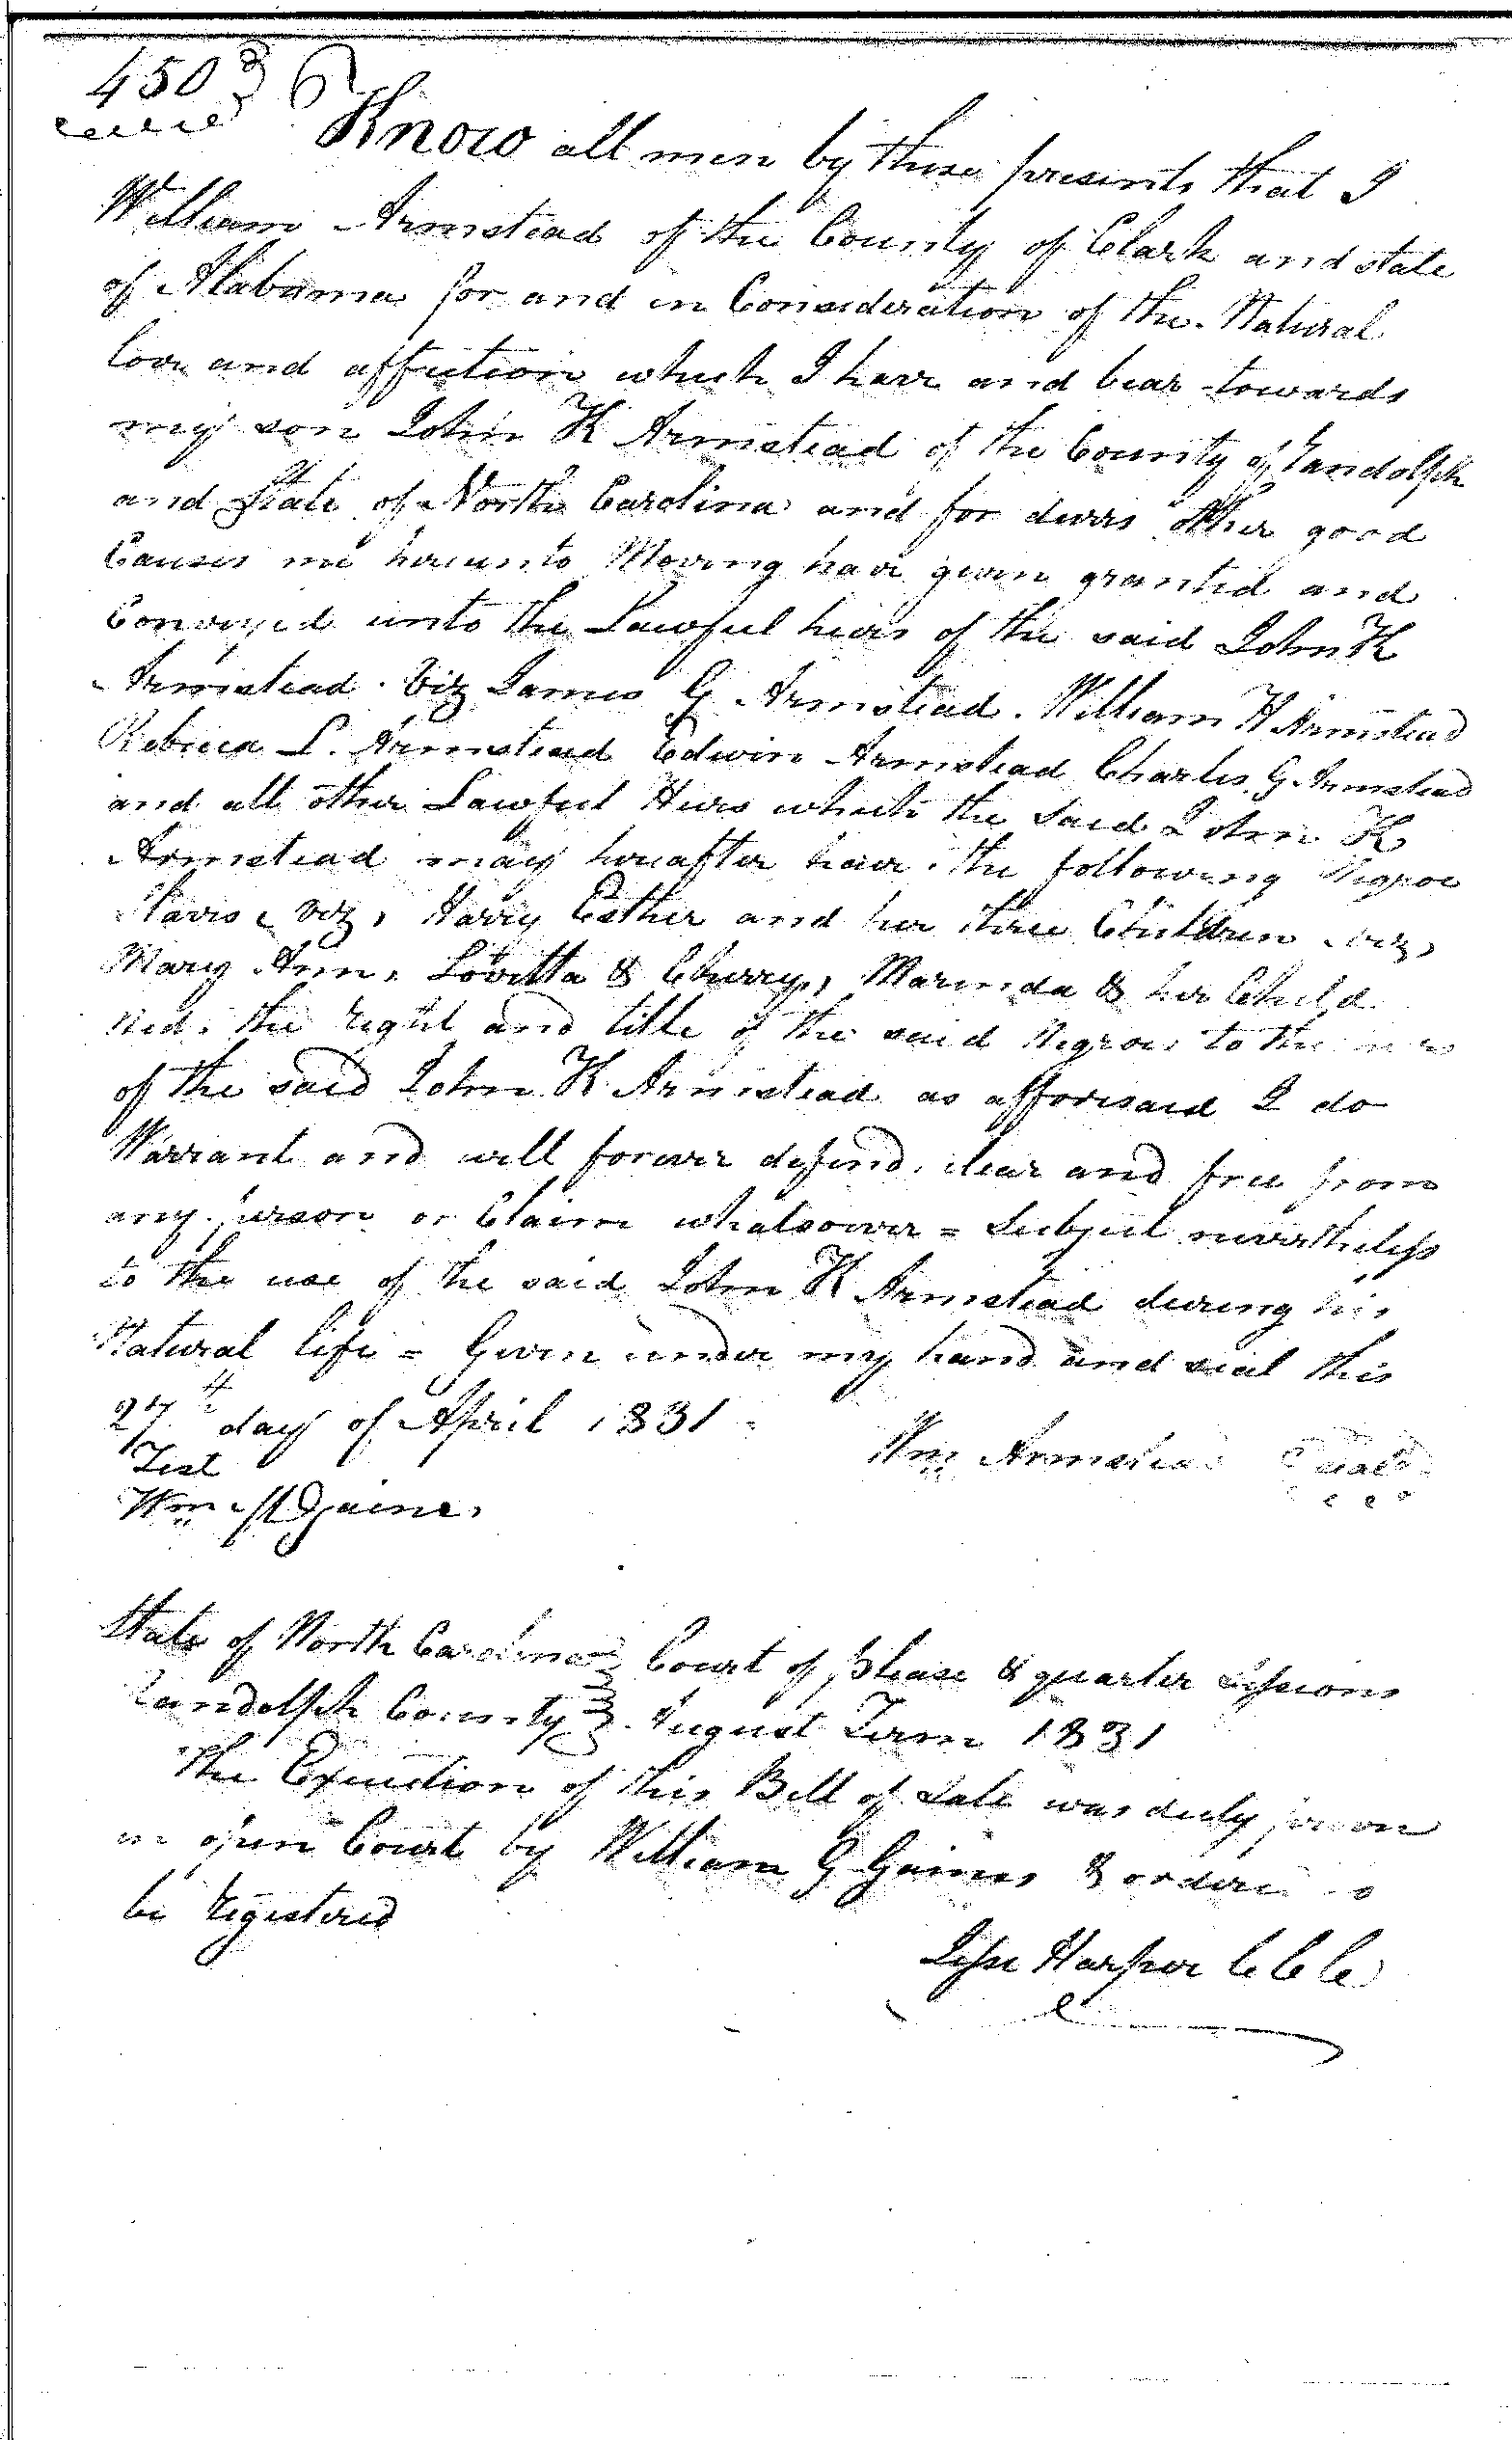 450
Know all men by these presents that I
William Armstead of the County of Clark and state
of Alabama for and in Consideration of the Natural
love and affection which I have and bear towards
my son John K Armstead of the County of Randolph
and State of North Carolina and for divers other good
Causes me hereunto Moving have given granted and
Conveyed unto the Lawful heirs of the said John K
Armstead. Viz James G Armstead. William H Armstead
Rebecca L. Armstead Edwin Armstead Charles G. Armstead
and all other Lawful Heirs which the said John K
Armstead may hereafter have. the following Negroe
Slaves, viz, Harry Esther and her three Children viz,
Mary Ann, Lovetta & Cherry, Marinda & her Child
Ned. the right and title of the said Negroes to the
of the said John K Armstead as afforesaid I do
Warrant and will forever defend, clear and free from
any person or Claim whatsoever = Subject nevertheless
to the use of the said John K Armstead during his
Natural life = Given under my hand and seal this
27th day of April 1831
Wm Armstead seal
Test
Wm Gaines
State of North Carolina Court of please & quarter sessions
Randolph County August Term 1831
The Execution of this Bill of Sale was duly proven
in open Court by William G Gaines & ordered to
be registered
Jesse Harper C C C